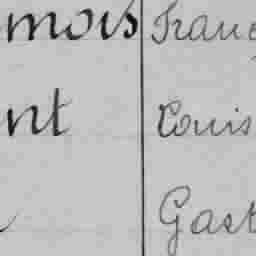 mois Franç
nt Louis
Gast